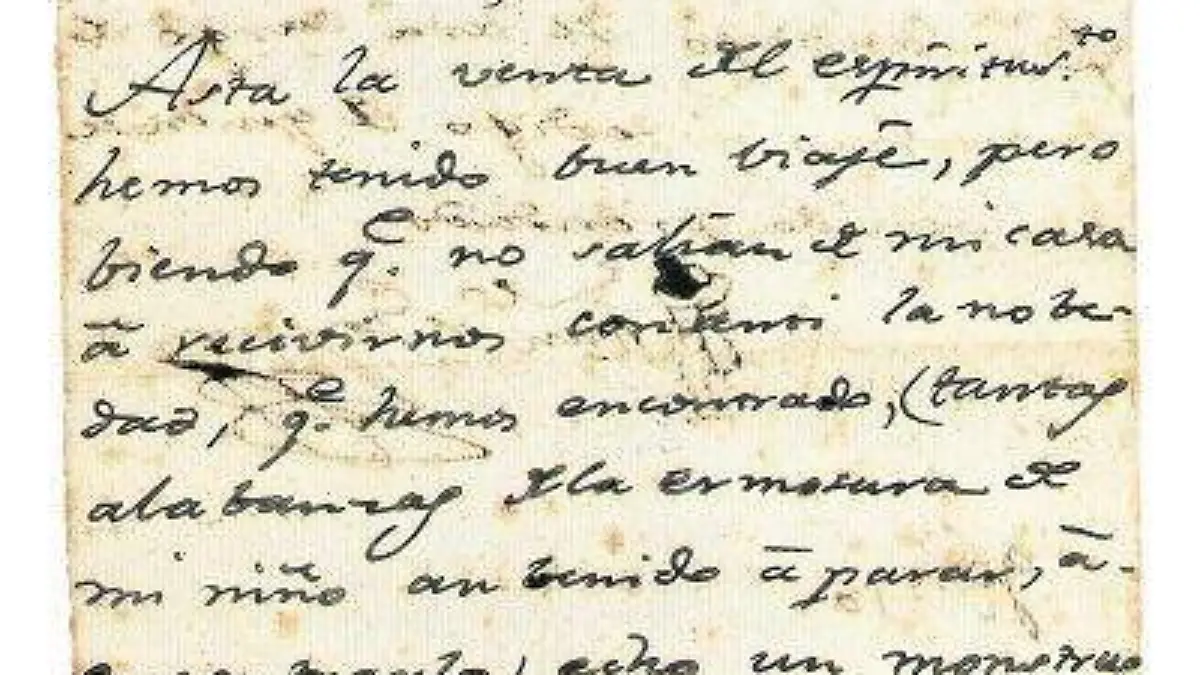 Asta la venta del espiritu S.to
hemos tenido buen biaje, pero
biendo q.e no salian de mi casa
â recivirnos con la nobe-
dad, q.e hemos encontrado, (tantas
alabanzas dla ermosura de
mi niño an benido â parar, â-
echo un monstruo